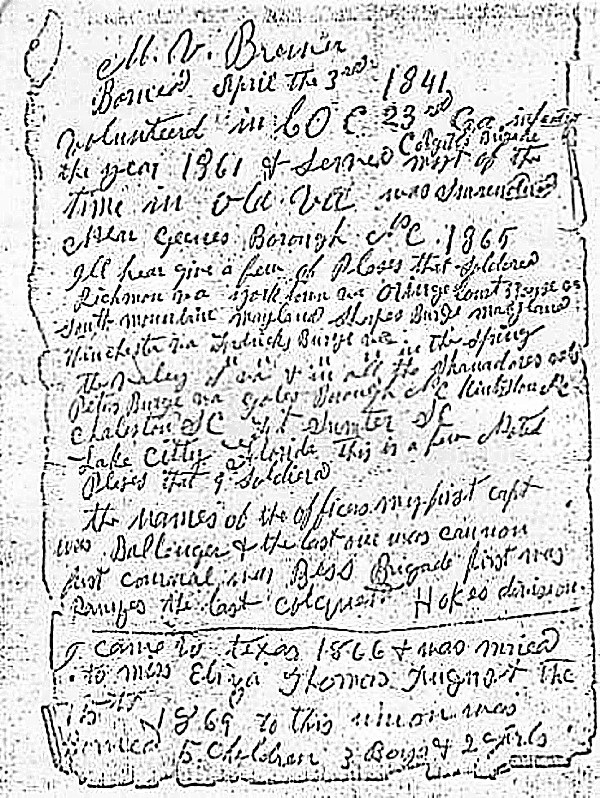 M. V. Brown
Borned April the 3rd 1841
Volunteerd in CO C 23rd Ga infantry
Colquits Brigade
the year 1861 & Served most of the
time in old Va was Surrendered
Near Greenes Borough N C. 1865
Ill hear give a few of Plases that Soldiered
Richmon va york town va Orringe Court House va
South mountain maryland Sharpes Burge maryland
Winchester va Fredricks Burge va in the Spring
the valley of va & in all the Shanadore
Peters Burge va Goles Borough N C Kinston N C
Charleston S C Fort Sumter S C
Lake City Florida This is a few Noted
Plases that I Soldierd
the names of the officers my first capt
was Ballenger & the last one was cannon
first cournal was Best Brigade first was
Rainses the last colquett Hokes division
I came to texas 1866 & was mried
to miss Eliza Thomas August the
15th 1869 to this union was
Borned 5 Children 3 Boys & 2 girls